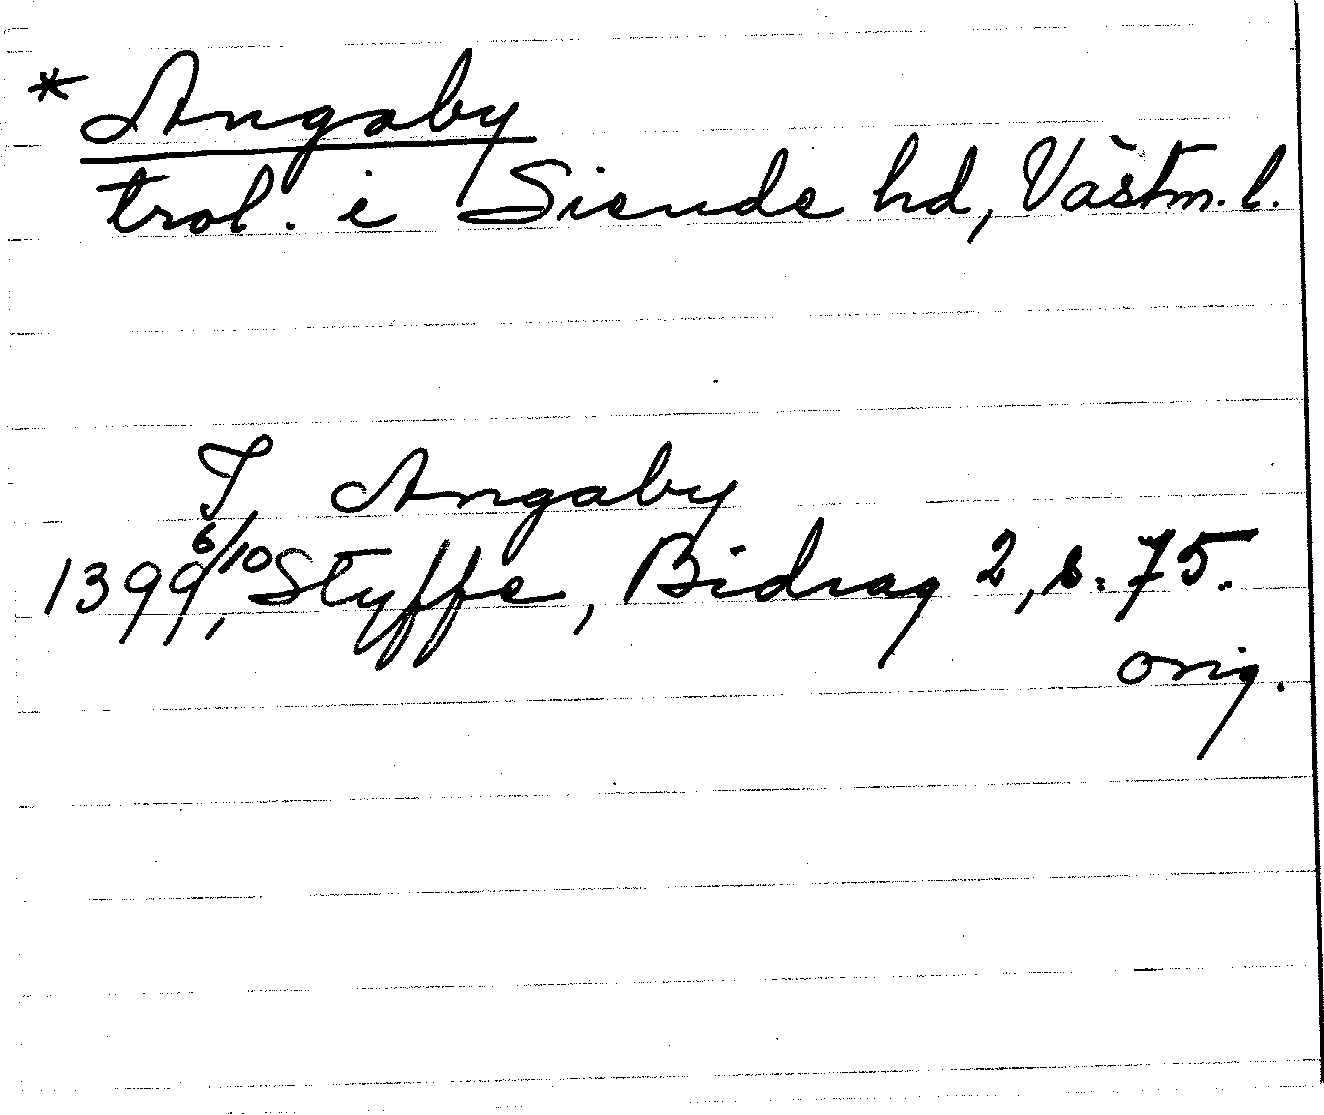 * Angaby
trol. i Siende hd, Västm. l.
I Angaby
1399 6/10, Styffe, Bidrag 2, s. 75.
orig.